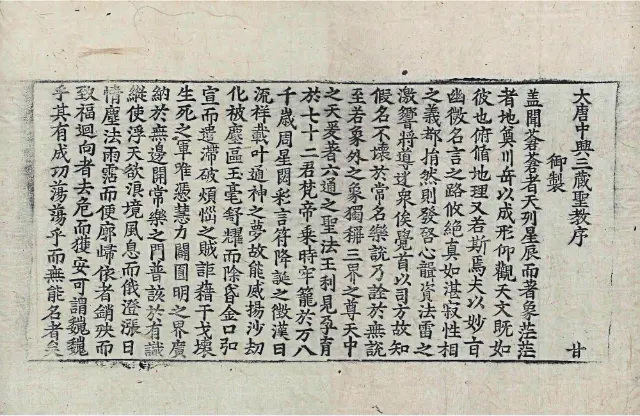 大唐中興三蔵聖教序
御製
甘
盖聞蒼蒼者天列星辰而著象茫茫
者地奠川岳以成形仰觀天文既如
彼也俯循地理又若斯焉夫以妙旨
幽微名言之路攸絶真如湛寂性相
之義都捐然則發啓心聾資法雷之
激響將導迷衆俟覺首以司方故知
假名不壞於常名樂說乃詮於無說
至若象外之象獨稱三界之尊天中
之天爰著六通之聖法王利見孕育
於七十二君梵帝乘時牢籠於万八
千歲周星閟彩言符降誕之徵漢日
流祥載叶通神之夢故能威揚沙劫
化被塵區玉毫舒耀而除昏金口弘
宣而遣滯破煩惱之賊詎藉干戈壞
生死之軍唯憑慧力闢圓明之界廣
納於無邊開常樂之門普該於有識
縱使浮天欲浪境風息而俄澄漲日
情塵法雨霑而便廓歸依者銷殃而
致福迴向者去危而獲安可謂巍巍
乎其有成功蕩蕩乎而無能名者矣